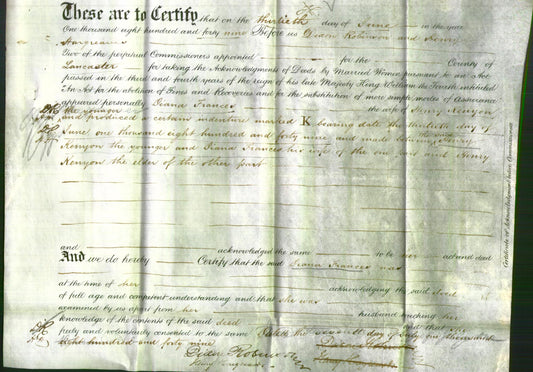 K
These are to Certify that on the thirtieth day of June in the year
One thousand eight hundred and forty nine Before us Dixon Robinson and Henry
Hargreaves
Two of the perpetual Commissioners appointed for the County of
Lancaster for taking the Acknowledgments of Deeds by Married Women pursuant to an Act
passed in the third and fourth years of the reign of his late Majesty King William the Fourth intituled
An Act for the abolition of Fines and Recoveries and for the substitution of more simple modes of Assurance
appeared personally Frances the wife of Henry Kenyon
the younger
and produced a certain indenture marked K bearing date the thirtieth day of
June one thousand eight hundred and forty nine and made between Henry
Kenyon the younger and Frances his wife of the one part and Henry
Kenyon the elder of the other part
and acknowledged the same to be her act and deed
And we do hereby Certify that the said Frances was
at the time of her acknowledging the said deed
of full age and competent understanding and that she was
examined by us apart from her husband touching her
knowledge of the contents of the said deed and that she
freely and voluntarily consented to the same day of July one thousand
eight hundred and forty nine
Dixon Robinson
Henry Hargreaves
Certificate of Acknowledgment before Commissioners